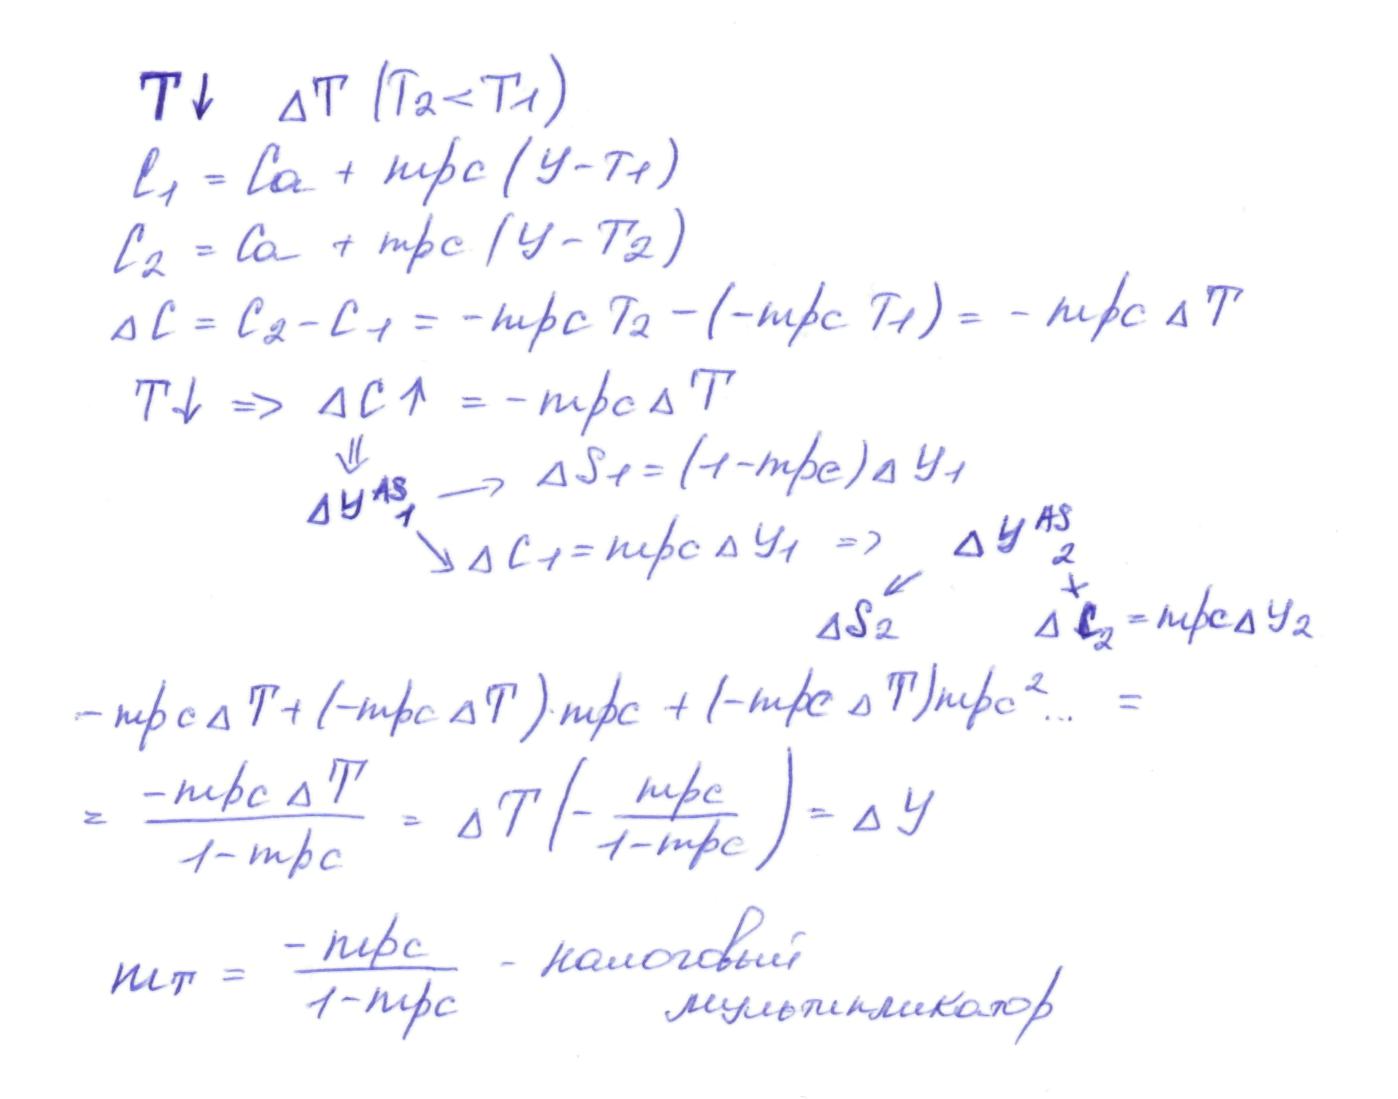 T↓ ΔT (T₂<T₁)
C₁ = Ca + mpc (Y-T₁)
C₂ = Ca + mpc (Y-T₂)
ΔC = C₂-C₁ = -mpc T₂ -(-mpc T₁) = - mpc ΔT
T↓ => ΔC↑ = -mpc ΔT
⇓
ΔY₁ᴬˢ → ΔS₁=(1-mpc)ΔY₁
↘ ΔC₁=mpc ΔY₁ => ΔY₂ᴬˢ
↙ ↘
ΔS₂ ΔC₂=mpcΔY₂
-mpcΔT+(-mpc ΔT)·mpc + (-mpc ΔT)mpc²... =
= \frac{-mpc ΔT}{1-mpc} = ΔT(-\frac{mpc}{1-mpc}) = ΔY
mт = \frac{-mpc}{1-mpc} - налоговый
мультипликатор